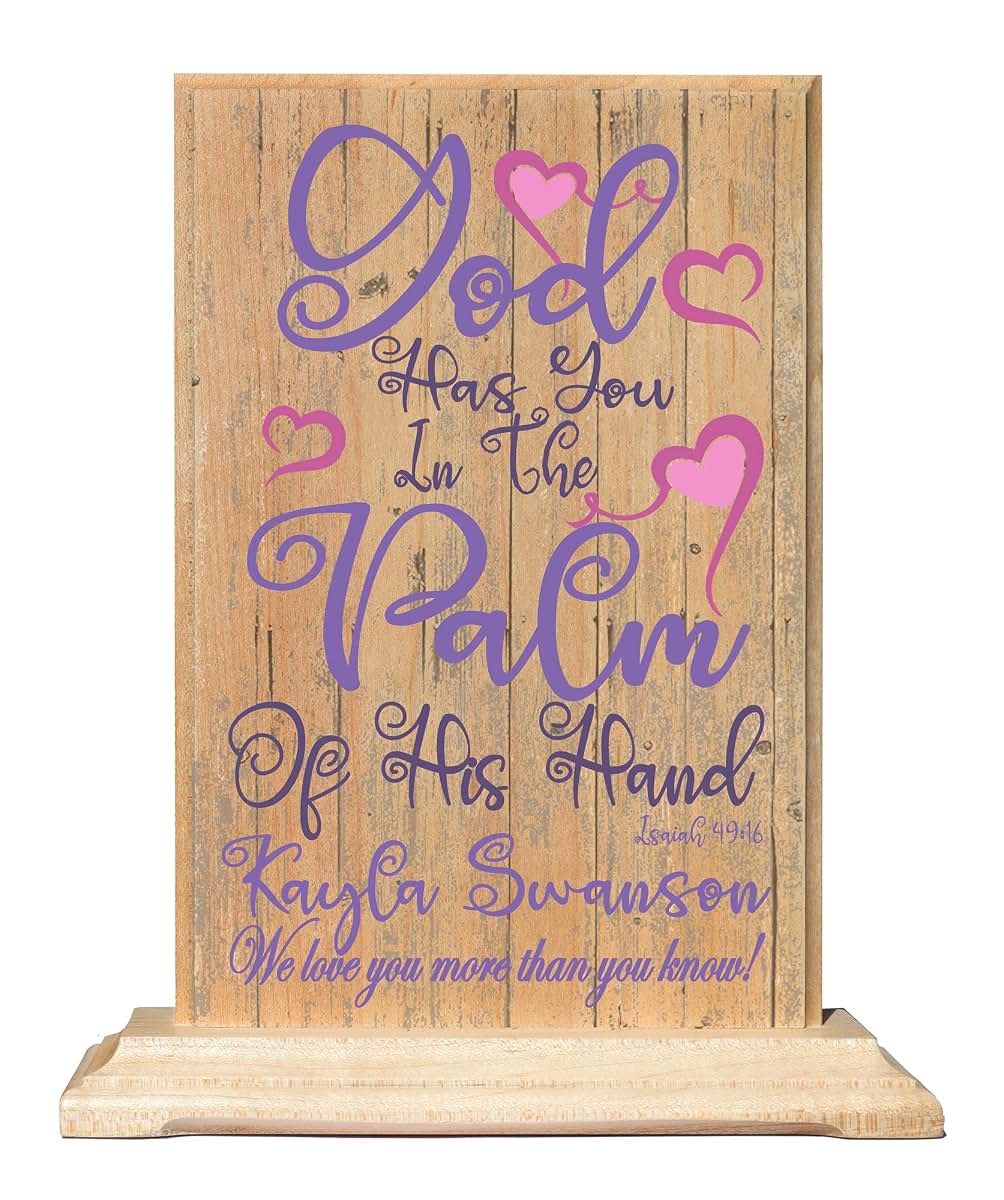 God
Has You
In The
Palm
Of His Hand
Isaiah 49:16
Kayla Swanson
We love you more than you know!